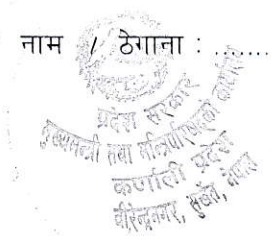 नाम / ठेगाना : ........
प्रदेश सरकार
मुख्यमन्त्री तथा मन्त्रिपरिषद्को कार्यालय
कर्णाली प्रदेश
वीरेन्द्रनगर, सुर्खेत, नेपाल